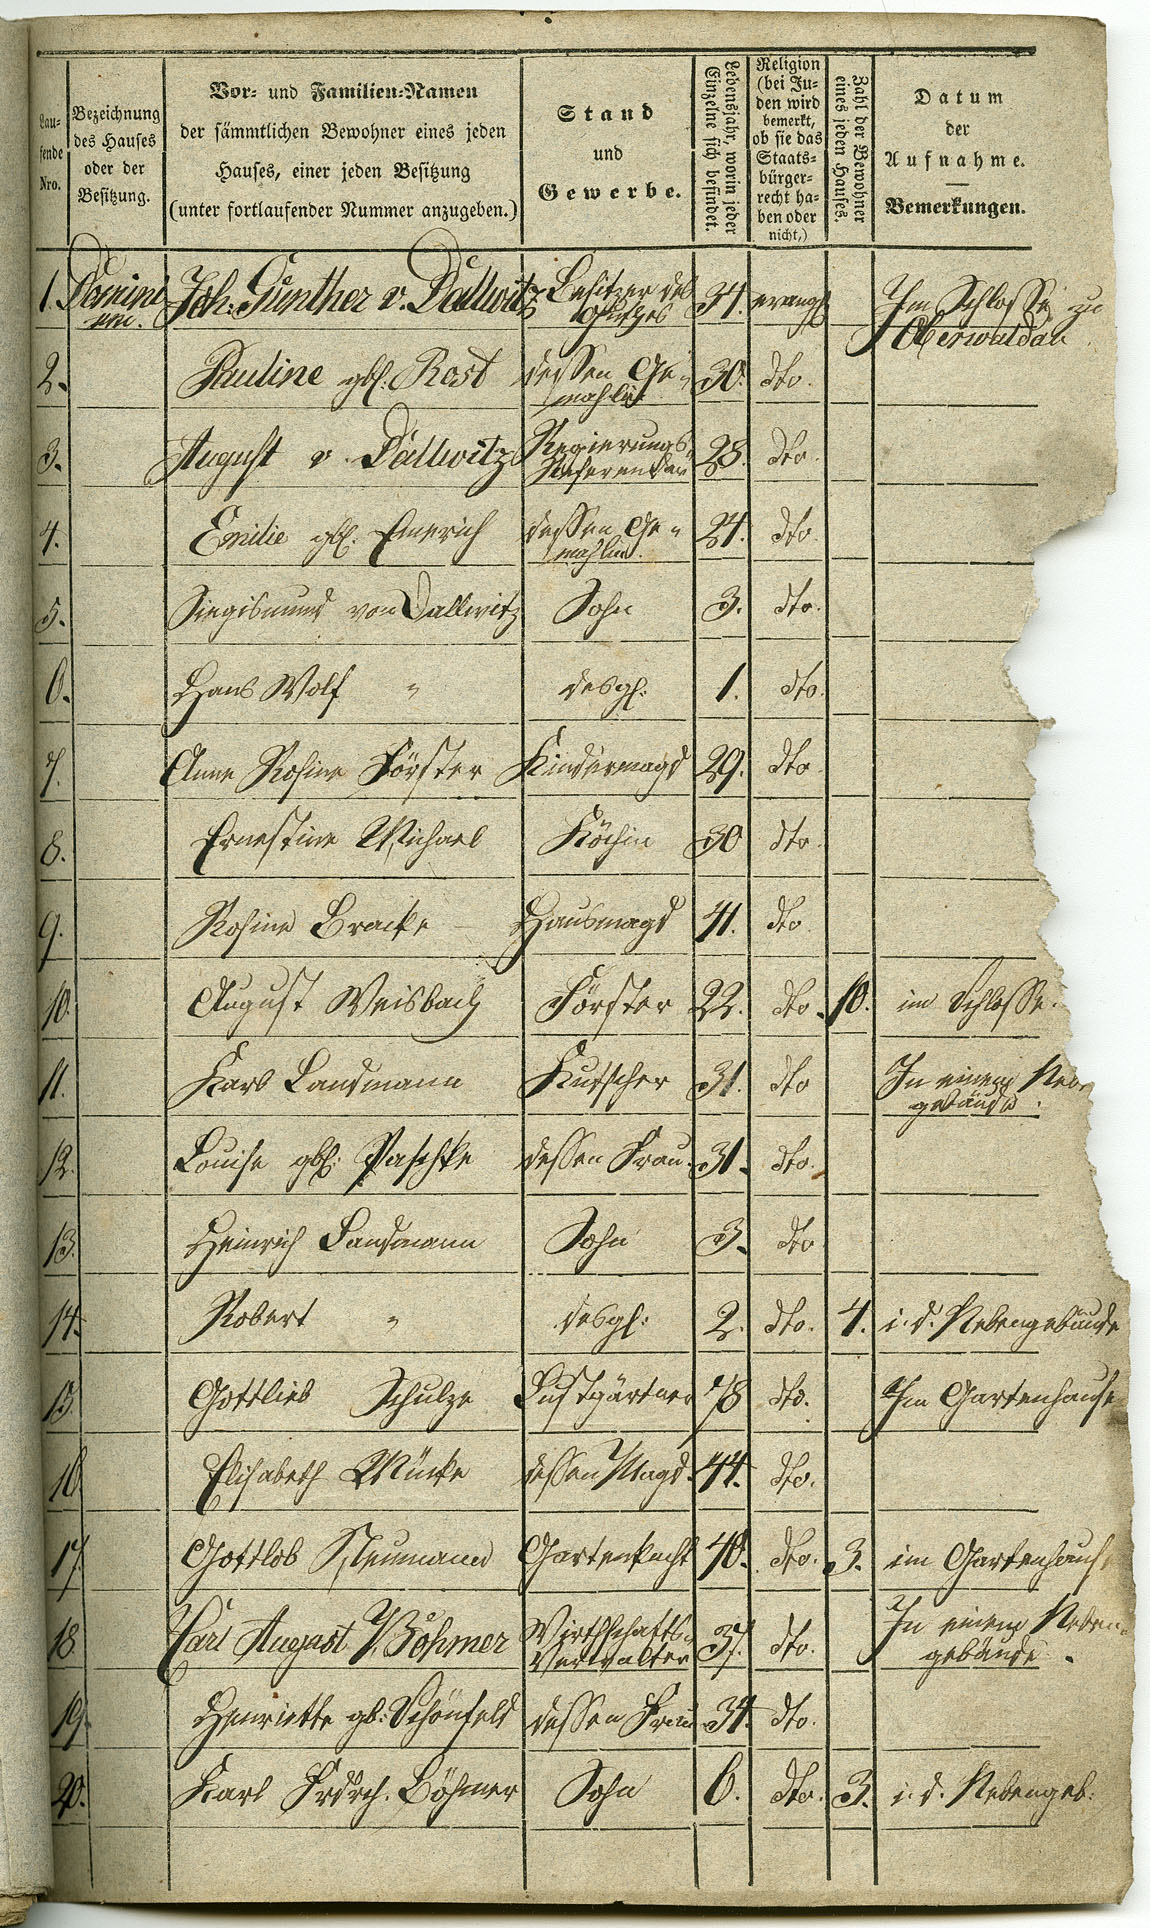 Lau-
fende
Nro.
Bezeichnung
des Hauses
oder der
Besitzung.
Vor- und Familien-Namen
der sämmtlichen Bewohner eines jeden
Hauses, einer jeden Besitzung
(unter fortlaufender Nummer anzugeben.)
Stand
und
Gewerbe.
Lebensjahr, worin jeder
Einzelne sich befindet.
Religion
(bei Ju-
den wird
bemerkt,
ob sie das
Staats-
bürger-
recht ha-
ben oder
nicht,)
Zahl der Bewohner
eines jeden Hauses.
Datum
der
Aufnahme.
Bemerkungen.
1. Domini Joh: Günther v. Dallwitz Besitzer des 34. evangl. Im Schlosse zu
um. Gutes Oberwaldau
2. Pauline gb. Rost dessen Ge- 30. dto.
mahlin
3. August v. Dallwitz Regierungs 28. dto.
Referendar
4. Emilie gb. Emerich dessen Ge- 24. dto.
mahlin.
5. Siegismund von Dallwitz Sohn 3. dto.
6. Hans Wolf " desgl: 1. dto.
7. Anne Rosine Förster Kindermagd 29. dto.
8. Ernestine Michael Köchin 30 dto.
9. Rosine Bracke Hausmagd 41. dto.
10. August Weisbach Förster 22. dto. 10. im Schlosse.
11. Karl Landmann Kutscher 31. dto In einem Nebe
gebäude.
12. Louise gb: Paschke dessen Frau. 31. dto.
13. Heinrich Landmann Sohn 3. dto
14. Robert " desgl: 2. dto. 4. i. d. Nebengebäude
15. Gottlieb Schulze Lustgärtner 78 dto. Im Gartenhause
16. Elisabeth Mücke dessen Magd. 44. dto.
17. Gottlob Neumann Gartenknecht 40. dto. 3. im Gartenhaus
18. Carl August Böhmer Wirthschafts- 37. dto. In einem Neben-
Verwalter gebäude.
19. Henriette gb: Schönfeld dessen Frau 34. dto.
20. Karl Frdrch. Böhmer Sohn 6. dto. 3. i. d. Nebengeb: